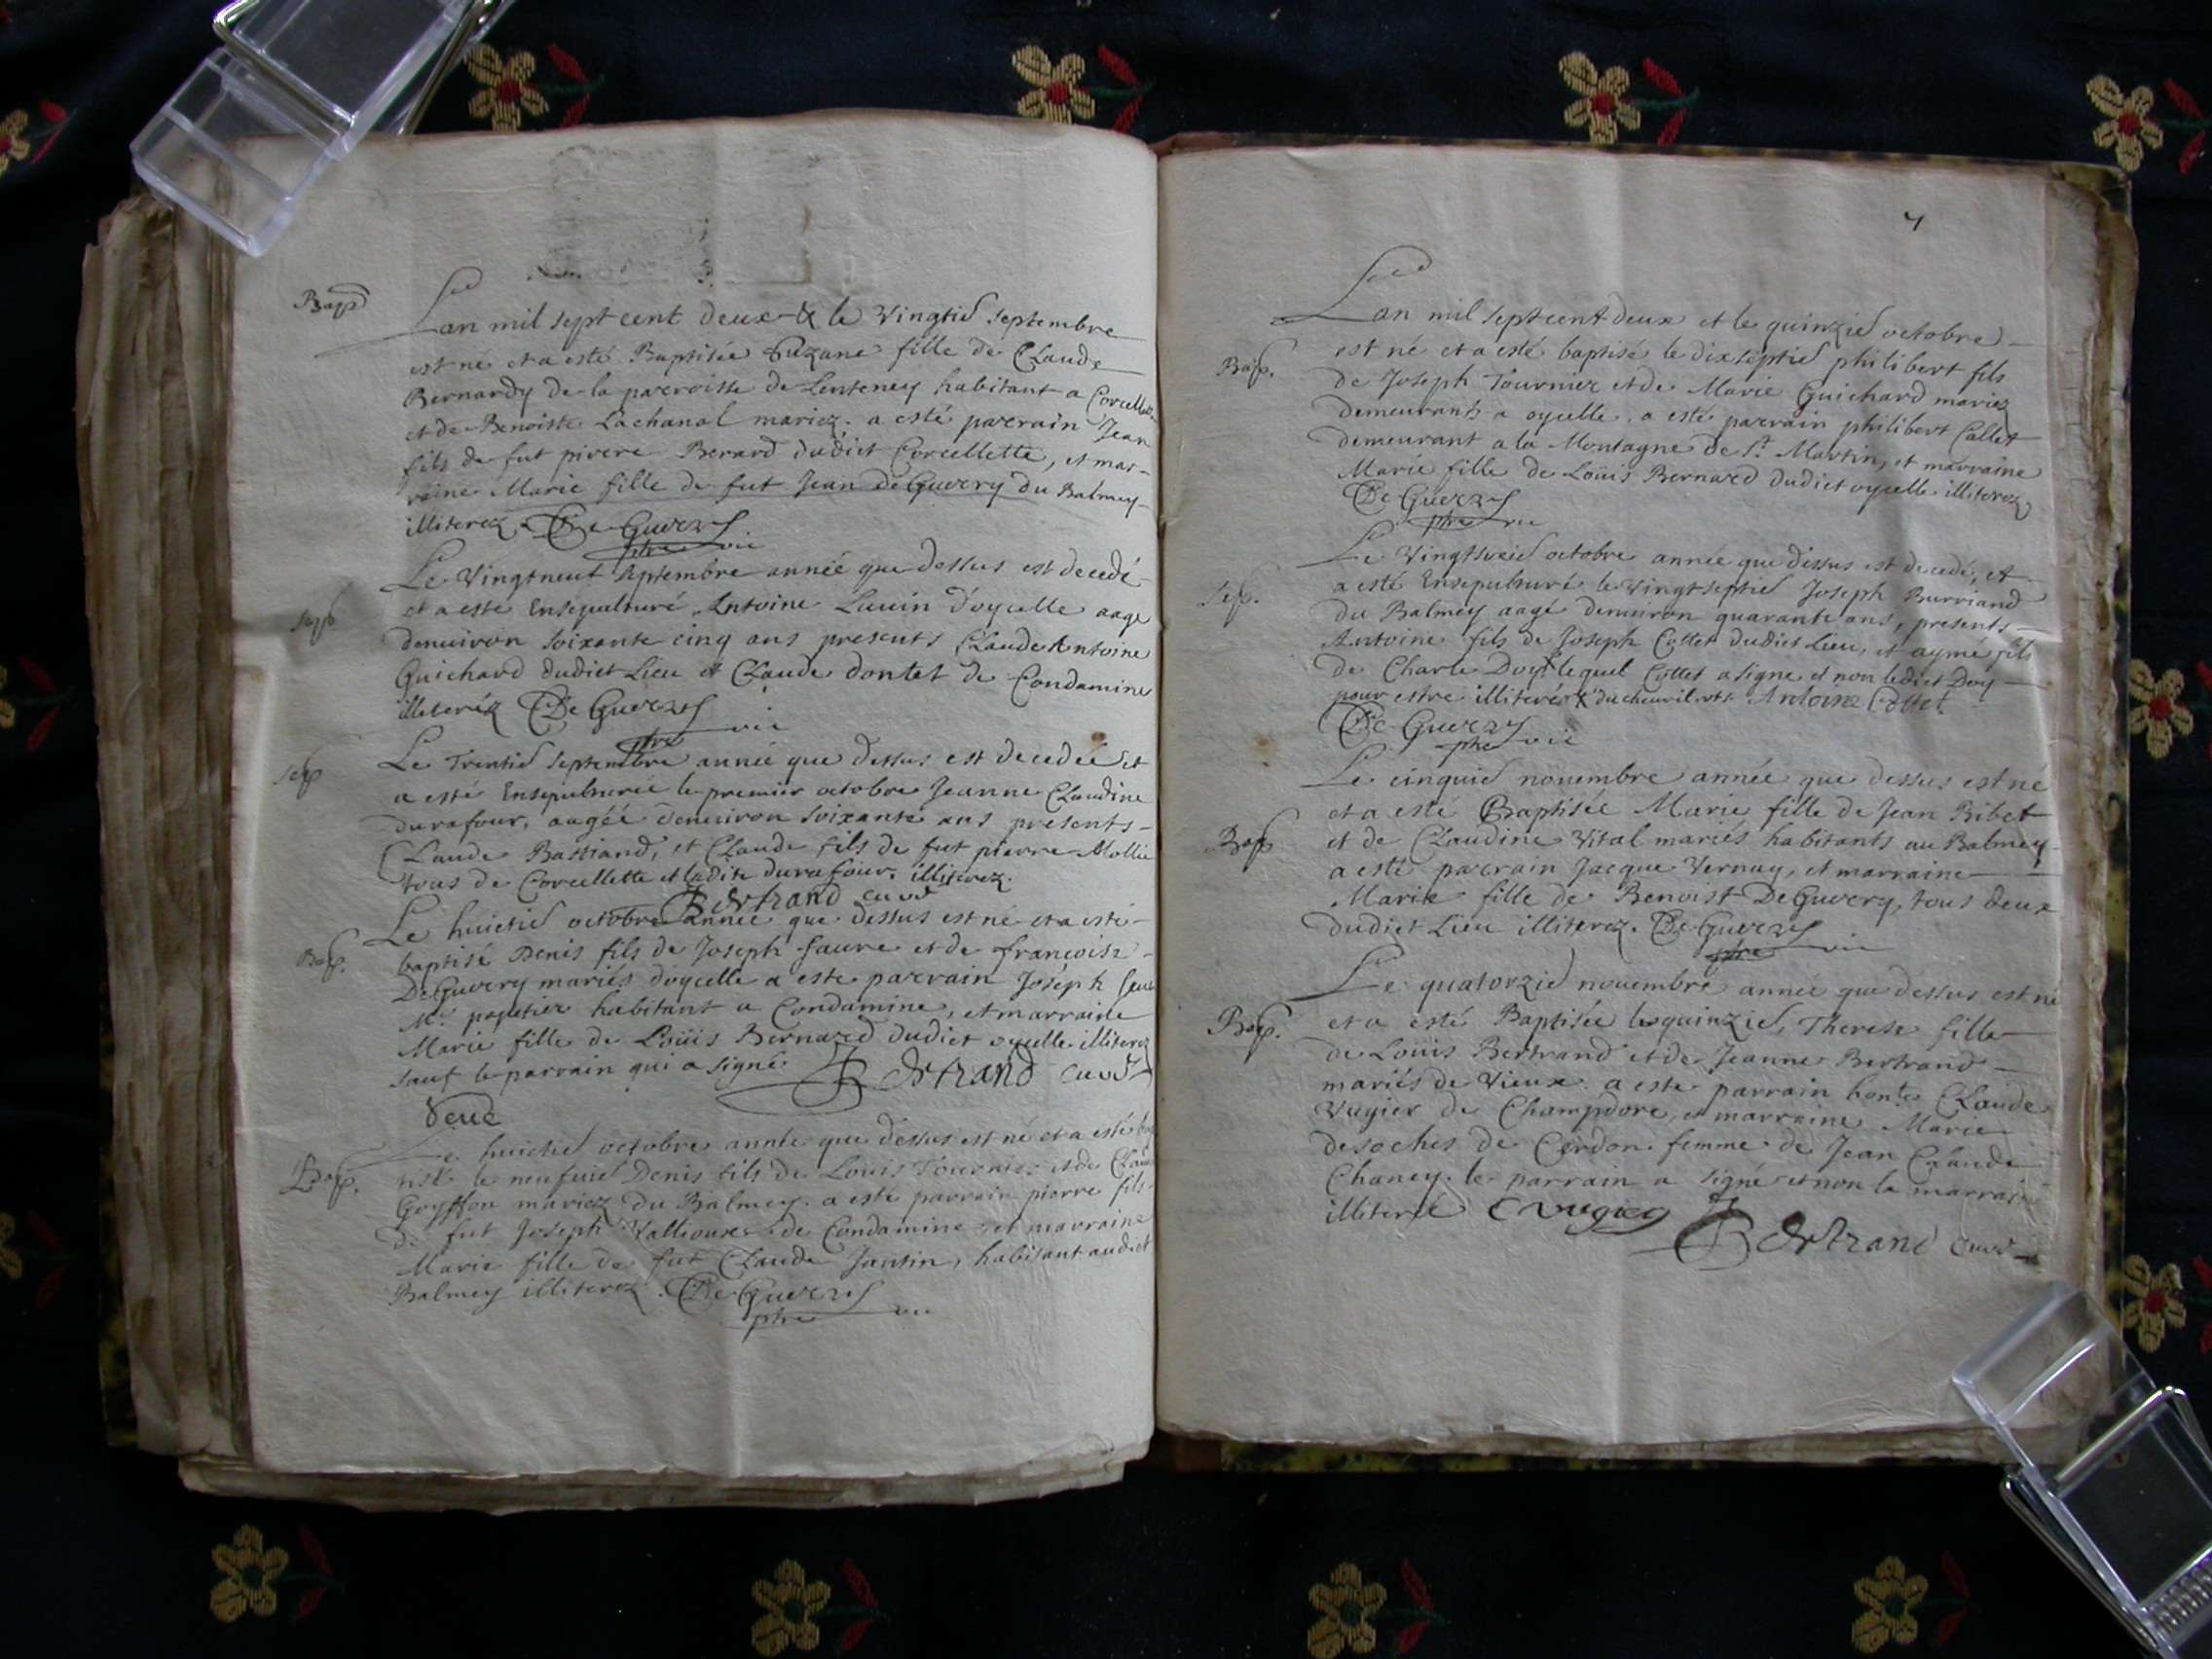 Bap
Lan mil sept cent deux & le Vingtie septembre
est né et a esté Baptisée Suzane fille de Claude
Bernardy de la parroisse de Lenteney habitant a Corcellette
et de Benoiste Lachanal mariez. a esté parrain Jean
fils de fut pivere Berard dudict Corcellette, et mar-
raine Marie fille de fut Jean DeGuvery du Balmey
illiterez. DeGuery
ptre vic
Sep
Le Vingtneuf Septembre année que dessus est decedé
et a esté Ensepulturé Antoine Lauin d'oycelle aagé
denuiron soixante cinq ans presents Claude Antoine
Guichard dudict Lieu et Claude dontet de Condamine
illiteréz DeGuery
ptre vic
Sep
Le Trentie Septembre année que dessus est decedée et
a esté Ensepulturée le premier octobre Jeanne Claudine
durafour, aagéé denuiron soixante ans presents
Claude Bastiand, et Claude fils de fut pierre Mollie
tous de Corcellette et ladite durafour. illiterez.
Bertrand curé
Bap.
Le huictie octobre année que dessus est né et a esté
baptisé Denis fils de Joseph faure et de francoise
DeGuvery mariés d'oycelle a este parrain Joseph
Mr. papetier habitant a Condamine, et marraine
Marie fille de Loüis Bernard dudict oycelle illiterez
sauf le parrain qui a signé Bertrand curé
Seue
Bap.
Le huictie octobre année que dessus est né et a esté bap
tisé le neufuie Denis fils de Louis Tournier et de Clau
Goyffon mariez du Balmey. a esté parrain pierre fils
de fut Joseph Vallioux de Condamine et marraine
Marie fille de fut Claude Jantin, habitant audict
Balmey illiterez. DeGuery
ptre vic
7
Bap.
Lan mil sept cent deux et le quinzie octobre
est né et a esté baptisé le dixseptie philibert fils
de Joseph Tournier et de Marie Guichard mariez
demeurants a oycelle. a esté parrain philibert Callet
demeurant a la Montagne de St. Martin, et marraine
Marie fille de Loüis Bernard dudict oycelle illiterez
DeGuery
ptre vic
Sep.
Le Vingtsixie octobre année que dessus est decedé, et
a esté Ensepulturé le Vingtseptie Joseph Burriand
du Balmey aagé denuiron quarante ans, presents
Antoine fils de Joseph Collet dudict Lieu, et aymé fils
de Charle Doy lequel Collet a signé et non ledict Doy
pour estre illiteré du cheuril. Antoine Collet
DeGuery
ptre vic
Bap
Le cinquie nouembre année que dessus est né
et a esté Baptisée Marie fille de Jean Ribet
et de Claudine Vital mariés habitants au Balmey
a esté parrain Jacque Vernay, et marraine
Marie fille de Benoist DeGuvery, tous deux
dudict Lieu illiterez. DeGuery
ptre vic
Bap.
Le quatorzie nouembre année que dessus est né
et a esté Baptisée le quinzie, Therese fille
de Loüis Bertrand et de Jeanne Bertrand
mariés de Vieux. a este parrain honte. Claude
Vugier de Champdore, et marraine Marie
desoches de Cerdon femme de Jean Claude
Chaney. le parrain a signé et non la marraine
illiterée C vugier Bertrand curé